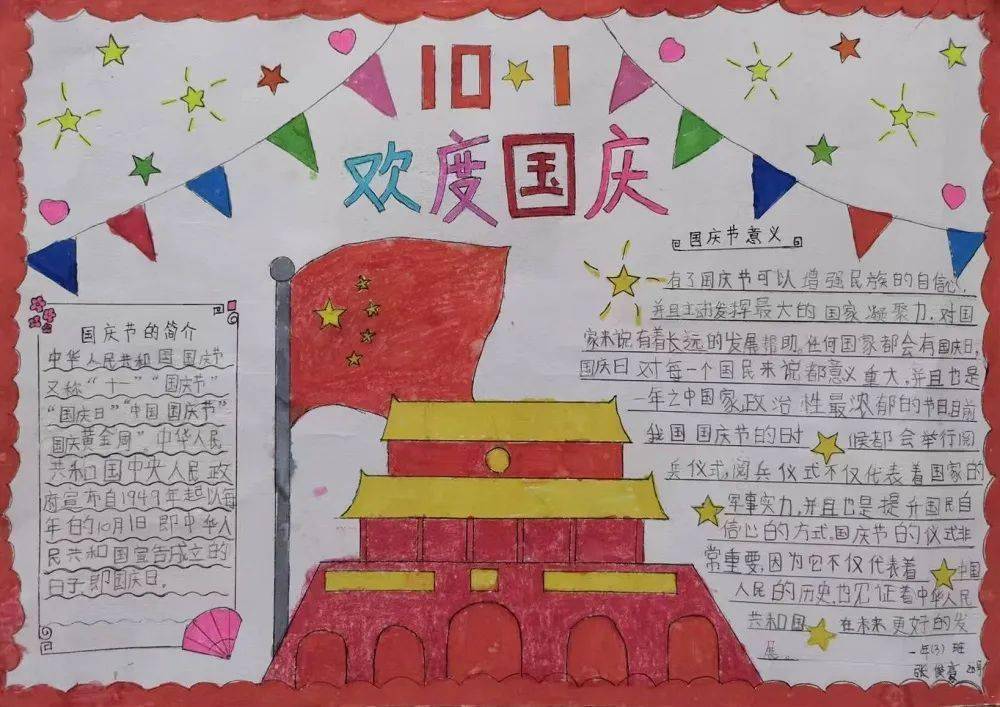 10·1
欢度国庆
国庆节的简介
中华人民共和国国庆节
又称“十一”“国庆节”
“国庆日”“中国国庆节”
国庆黄金周”.中华人民
共和国中央人民政
府宣布自1949年起以每
年的10月1日即中华人
民共和国宣告成立的
日子,即国庆日.
国庆节意义
有了国庆节可以增强民族的自信心,
并且主动发挥最大的国家凝聚力.对国
家来说有着长远的发展帮助.任何国家都会有国庆日,
国庆日对每一个国民来说都意义重大,并且也是
一年之中国家政治性最浓郁的节日目前
我国国庆节的时候都会举行阅
兵仪式,阅兵仪式不仅代表着国家的
军事实力,并且也是提升国民自
信心的方式.国庆节的仪式非
常重要,因为它不仅代表着中国
人民的历史,也见证着中华人民
共和国在未来更好的发
展.
一年(3)班
张俊豪